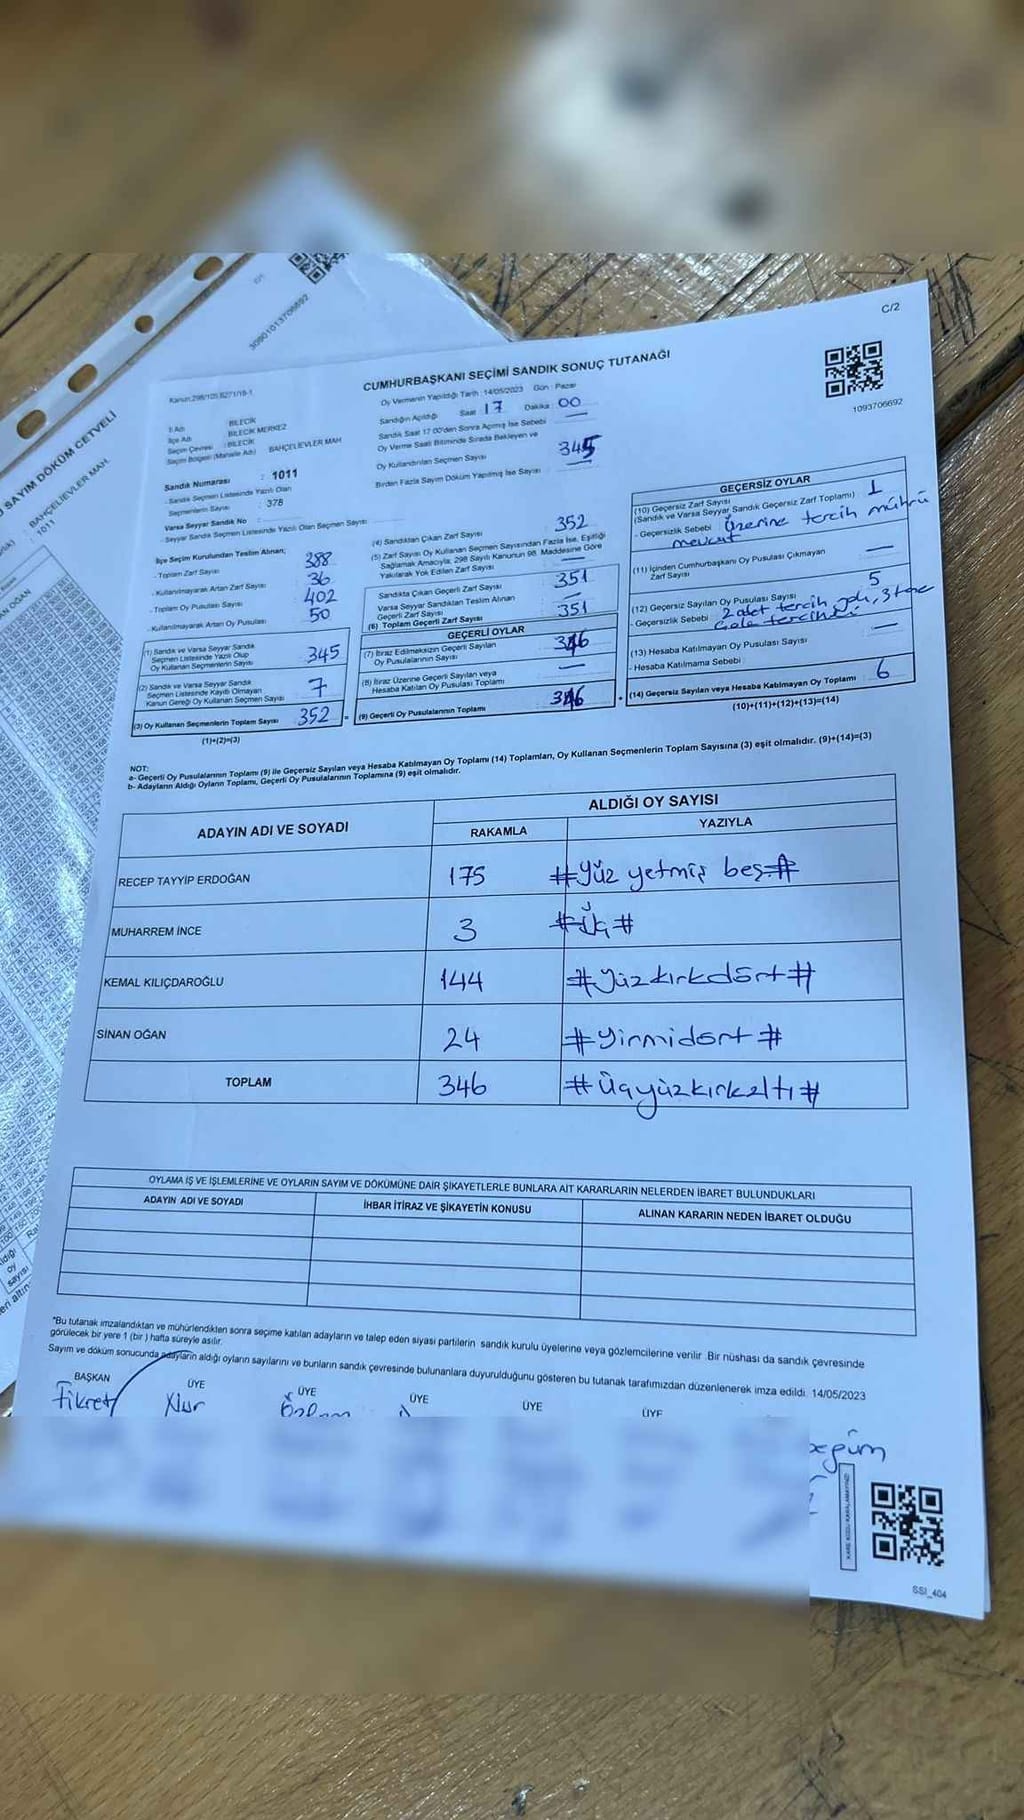 C/2
1093706692
30901013706692
SAYIM DÖKÜM CETVELİ
BAHÇELİEVLER MAH.
1011
CUMHURBAŞKANI SEÇİMİ SANDIK SONUÇ TUTANAĞI
Oy Vermenin Yapıldığı Tarih : 14/05/2023 Gün : Pazar
Sandığın Açıldığı Saat 17 Dakika 00
Sandık Saat 17:00'den Sonra Açılmış İse Sebebi —
Oy Verme Saati Bitiminde Sırada Bekleyen ve
Oy Kullandırılan Seçmen Sayısı 345
Birden Fazla Sayım Döküm Yapılmış İse Sayısı —
İl Adı : BİLECİK
İlçe Adı : BİLECİK MERKEZ
Seçim Çevresi : BİLECİK
Seçim Bölgesi (Mahalle Adı) : BAHÇELİEVLER MAH
Sandık Numarası : 1011
- Sandık Seçmen Listesinde Yazılı Olan
Seçmenlerin Sayısı : 378
Varsa Seyyar Sandık No :
- Seyyar Sandık Seçmen Listesinde Yazılı Olan Seçmen Sayısı :
İlçe Seçim Kurulundan Teslim Alınan;
- Toplam Zarf Sayısı 388
- Kullanılmayarak Artan Zarf Sayısı 36
- Toplam Oy Pusulası Sayısı 402
- Kullanılmayarak Artan Oy Pusulası 50
(1) Sandık ve Varsa Seyyar Sandık
Seçmen Listesinde Yazılı Olup
Oy Kullanan Seçmenlerin Sayısı 345
(2) Sandık ve Varsa Seyyar Sandık
Seçmen Listesinde Kaydı Olmayan
Kanun Gereği Oy Kullanan Seçmen Sayısı 7
(3) Oy Kullanan Seçmenlerin Toplam Sayısı 352 =
(1)+(2)=(3)
(4) Sandıktan Çıkan Zarf Sayısı 352
(5) Zarf Sayısı Oy Kullanan Seçmen Sayısından Fazla İse, Eşitliği
Sağlamak Amacıyla, 298 Sayılı Kanunun 98. Maddesine Göre
Yakılarak Yok Edilen Zarf Sayısı —
Sandıkta Çıkan Geçerli Zarf Sayısı 351
Varsa Seyyar Sandıktan Teslim Alınan
Geçerli Zarf Sayısı —
(6) Toplam Geçerli Zarf Sayısı 351
GEÇERLİ OYLAR
(7) İtiraz Edilmeksizin Geçerli Sayılan
Oy Pusulalarının Sayısı 346
(8) İtiraz Üzerine Geçerli Sayılan veya
Hesaba Katılan Oy Pusulası Toplamı —
(9) Geçerli Oy Pusulalarının Toplamı 346 +
GEÇERSİZ OYLAR
(10) Geçersiz Zarf Sayısı
(Sandık ve Varsa Seyyar Sandık Geçersiz Zarf Toplamı) 1
- Geçersizlik Sebebi : Üzerine tercih mührü
mevcut
(11) İçinden Cumhurbaşkanı Oy Pusulası Çıkmayan
Zarf Sayısı —
(12) Geçersiz Sayılan Oy Pusulası Sayısı 5
- Geçersizlik Sebebi : 2 adet tercih 3 tane
(13) Hesaba Katılmayan Oy Pusulası Sayısı —
- Hesaba Katılmama Sebebi :
(14) Geçersiz Sayılan veya Hesaba Katılmayan Oy Toplamı 6
(10)+(11)+(12)+(13)=(14)
NOT:
a- Geçerli Oy Pusulalarının Toplamı (9) ile Geçersiz Sayılan veya Hesaba Katılmayan Oy Toplamı (14) Toplamları, Oy Kullanan Seçmenlerin Toplam Sayısına (3) eşit olmalıdır. (9)+(14)=(3)
b- Adayların Aldığı Oyların Toplamı, Geçerli Oy Pusulalarının Toplamına (9) eşit olmalıdır.
ADAYIN ADI VE SOYADI ALDIĞI OY SAYISI
RAKAMLA YAZIYLA
RECEP TAYYİP ERDOĞAN 175 #Yüz yetmiş beş#
MUHARREM İNCE 3 #Üç#
KEMAL KILIÇDAROĞLU 144 #Yüzkırkdört#
SİNAN OĞAN 24 #Yirmidört#
TOPLAM 346 #Üçyüzkırkaltı#
OYLAMA İŞ VE İŞLEMLERİNE VE OYLARIN SAYIM VE DÖKÜMÜNE DAİR ŞİKAYETLERLE BUNLARA AİT KARARLARIN NELERDEN İBARET BULUNDUKLARI
ADAYIN ADI VE SOYADI İHBAR İTİRAZ VE ŞİKAYETİN KONUSU ALINAN KARARIN NEDEN İBARET OLDUĞU
*Bu tutanak imzalandıktan ve mühürlendikten sonra seçime katılan adayların ve talep eden siyasi partilerin sandık kurulu üyelerine veya gözlemcilerine verilir. Bir nüshası da sandık çevresinde
görülecek bir yere 1 (bir ) hafta süreyle asılır.
Sayım ve döküm sonucunda adayların aldığı oyların sayılarını ve bunların sandık çevresinde bulunanlara duyurulduğunu gösteren bu tutanak tarafımızdan düzenlenerek imza edildi. 14/05/2023
BAŞKAN ÜYE ÜYE ÜYE ÜYE ÜYE
Fikret Nur Özlem
KARE KODU KARALAMAYINIZ!
SSI_404